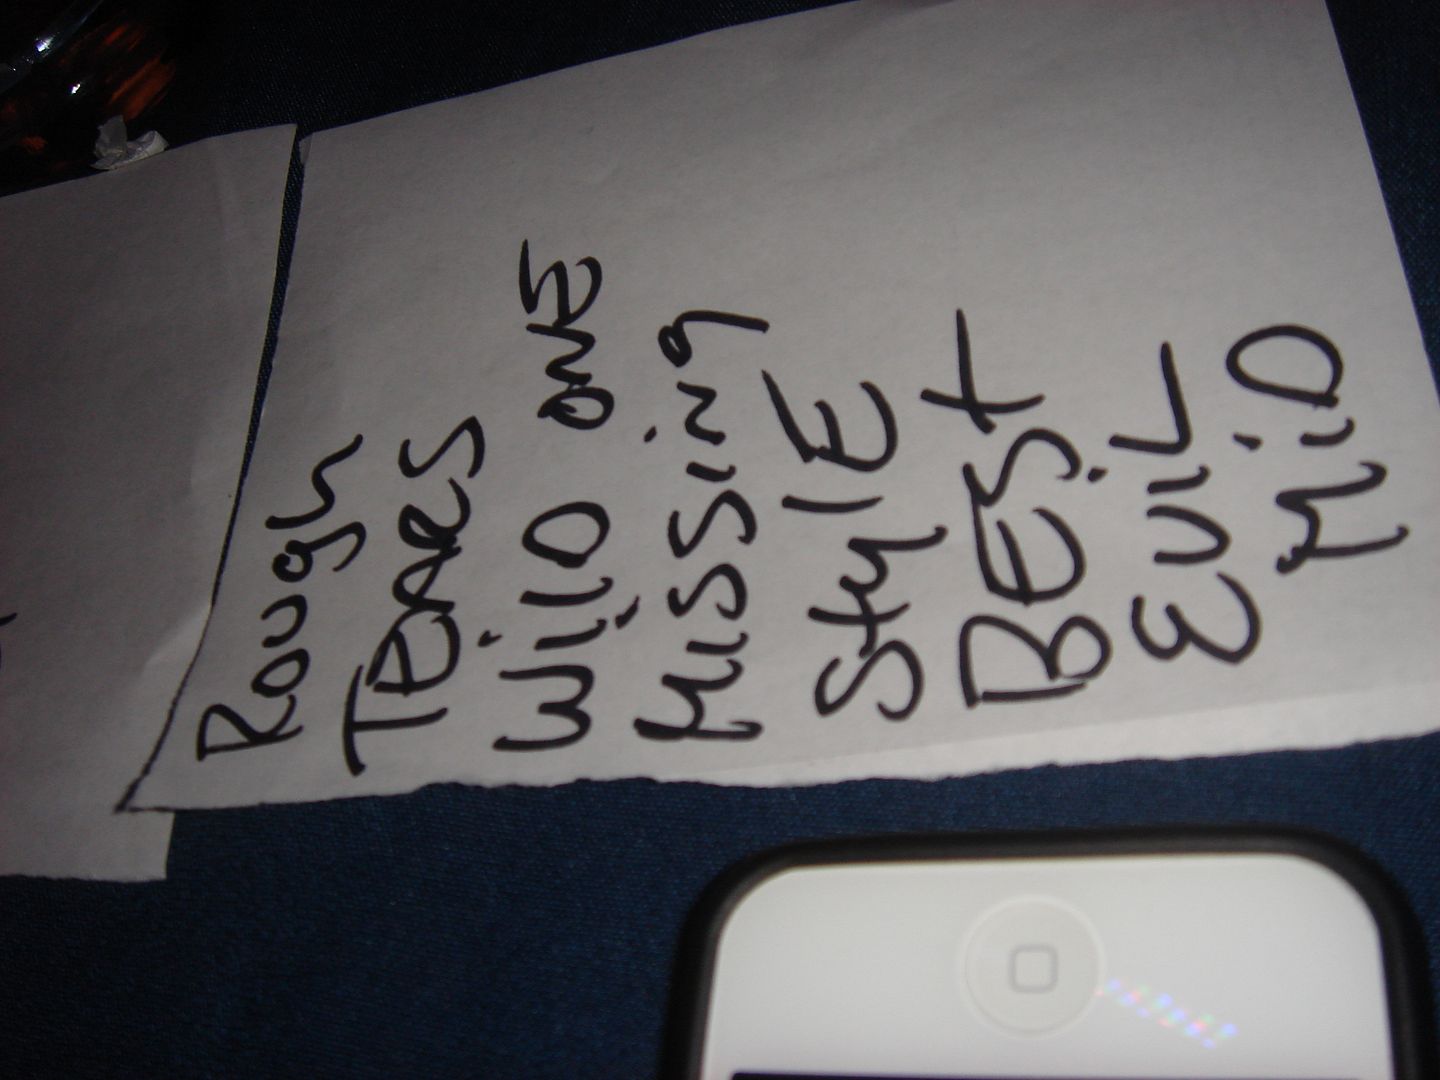 Rough
TEARS
Wild ONE
Missing
StylE
BESt
EviL
MiO